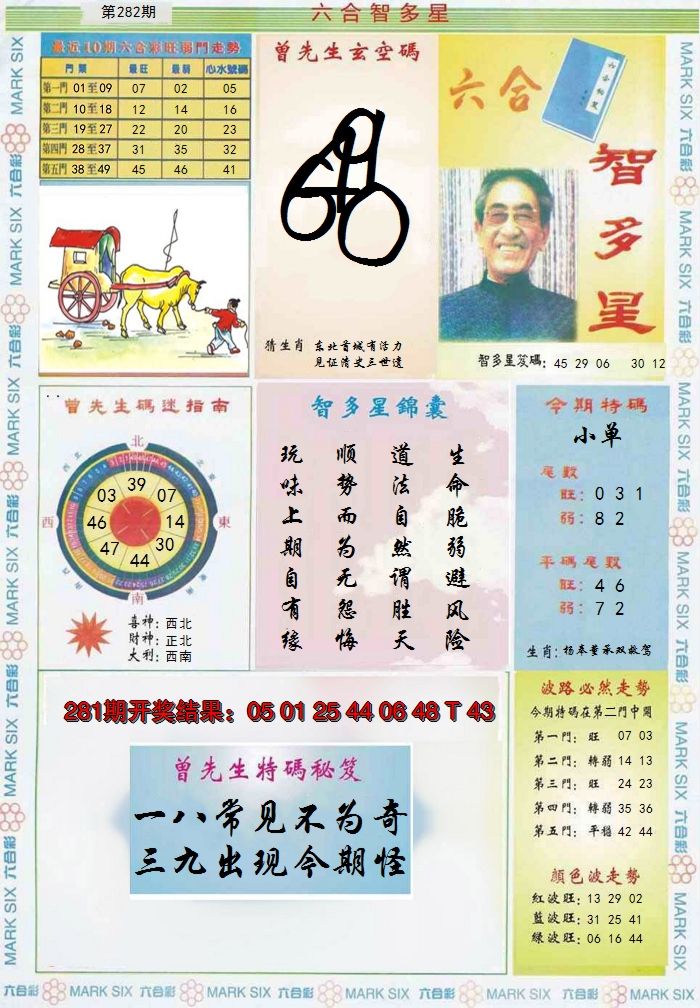 第282期
六合智多星
最近10期六合彩旺弱門走勢
門類 最旺 最弱 心水號碼
第一門 01至09 07 02 05
第二門 10至18 12 14 16
第三門 19至27 22 20 23
第四門 28至37 31 35 32
第五門 38至49 45 46 41
曾先生玄空碼
猜生肖 东北晋城有活力
见证清史三世遗
六合
智多星
六合秘笈
智多星笈碼: 45 29 06 30 12
曾先生碼迷指南
北
39
03 07
西 46 14 東
47 30
44
南
喜神: 西北
財神: 正北
大利: 西南
智多星錦囊
生命脆弱避风险
道法自然谓胜天
顺势而为无怨悔
玩味上期自有缘
今期特碼
小单
尾數
旺: 0 3 1
弱: 8 2
平碼尾數
旺: 4 6
弱: 7 2
生肖: 杨奉董承双救驾
281期开奖结果: 05 01 25 44 06 48 T 43
曾先生特碼秘笈
一八常见不为奇
三九出现今期怪
波路必然走勢
今期特碼在第二門中開
第一門: 旺 07 03
第二門: 轉弱 14 13
第三門: 旺 24 23
第四門: 轉弱 35 36
第五門: 平穩 42 44
顏色波走勢
紅波旺: 13 29 02
藍波旺: 31 25 41
绿波旺: 06 16 44
六合彩 MARK SIX 六合彩 MARK SIX 六合彩 MARK SIX 六合彩 MARK SIX 六合彩